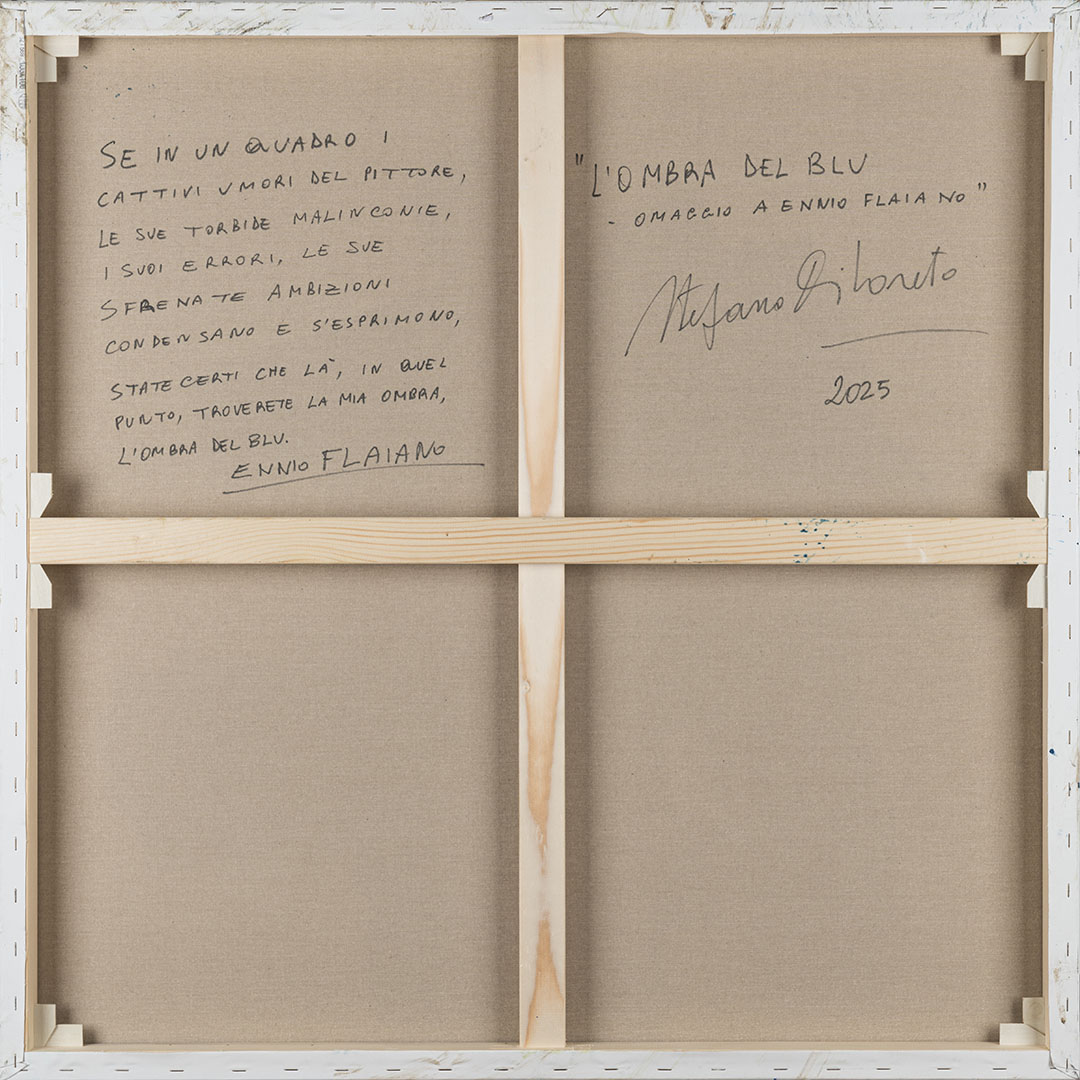 SE IN UN QUADRO I
CATTIVI UMORI DEL PITTORE,
LE SUE TORBIDE MALINCONIE,
I SUOI ERRORI, LE SUE
SFRENATE AMBIZIONI
CONDENSANO E S'ESPRIMONO,
STATE CERTI CHE LÀ, IN QUEL
PUNTO, TROVERETE LA MIA OMBRA,
L'OMBRA DEL BLU.
ENNIO FLAIANO
"L'OMBRA DEL BLU
- OMAGGIO A ENNIO FLAIANO"
Stefano Di Loreto
2025